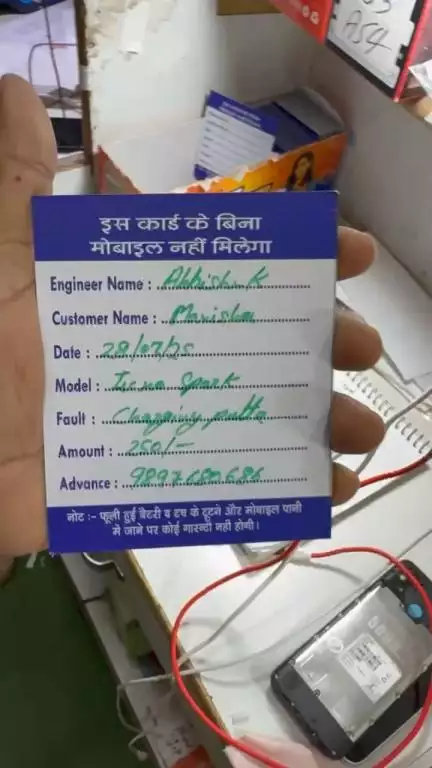 इस कार्ड के बिना
मोबाइल नहीं मिलेगा
Engineer Name : Abhishek
Customer Name : Manisha
Date : 28/07/25
Model : Tecno Spark
Fault : Charging patta
Amount : 250/-
Advance : 9897680686
नोट :- फूली हुई बैटरी व टच के टूटने और मोबाइल पानी
में जाने पर कोई गारन्टी नही होगी।
A54